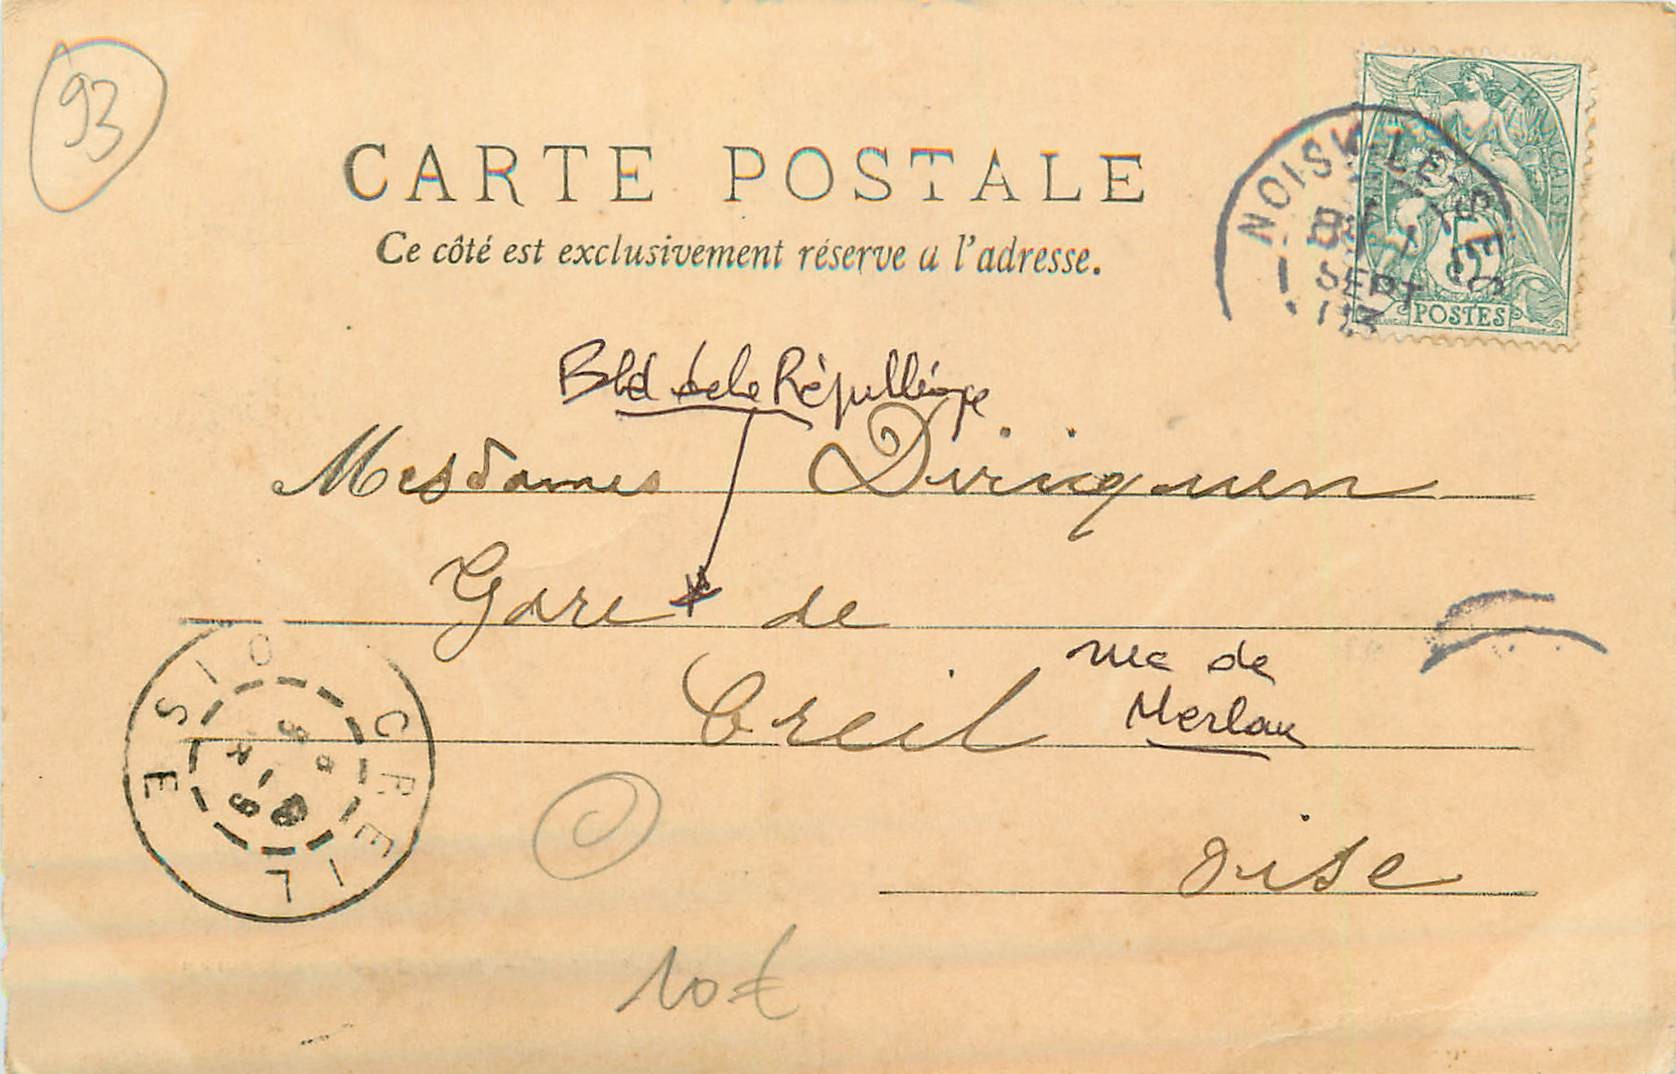 93
CARTE POSTALE
Ce côté est exclusivement réservé a l'adresse.
FRANÇAISE
POSTES
NOISY-LE-SEC
SEPT
03
Bld de la République
Mesdames Diricquen
Gare * de
Creil
rue de
Merlan
Oise
CREIL
OISE
10€